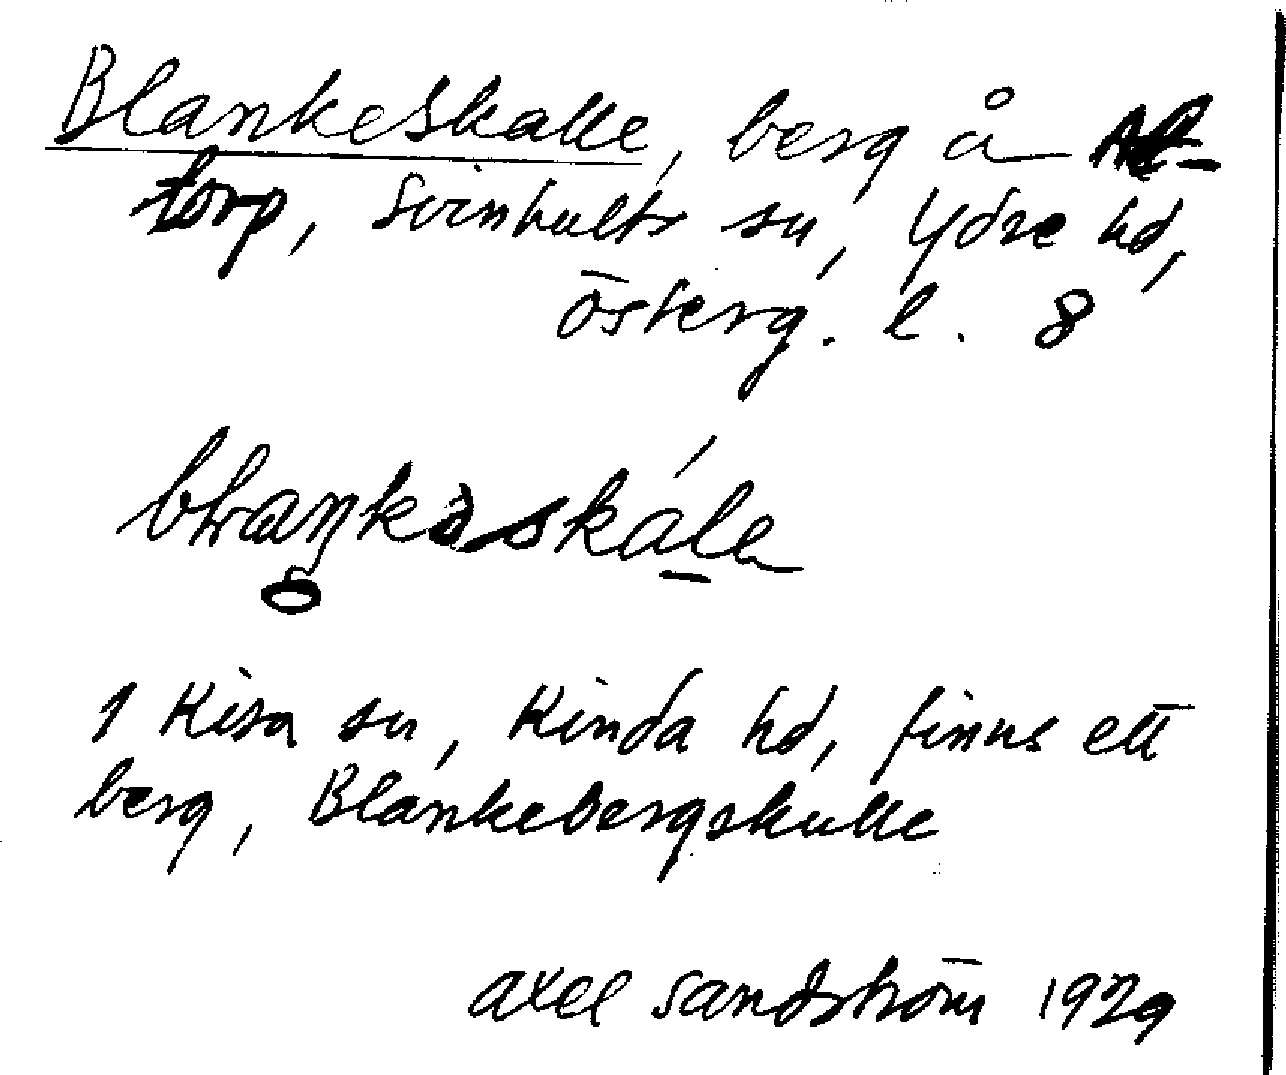 Blankeskalle, berg å Al-
torp, Svinhults sn, Ydre hd,
Österg. l. 8
I Kisa sn, Kinda hd, finns ett
berg, Blankebergskulle
Axel Sandström 1929